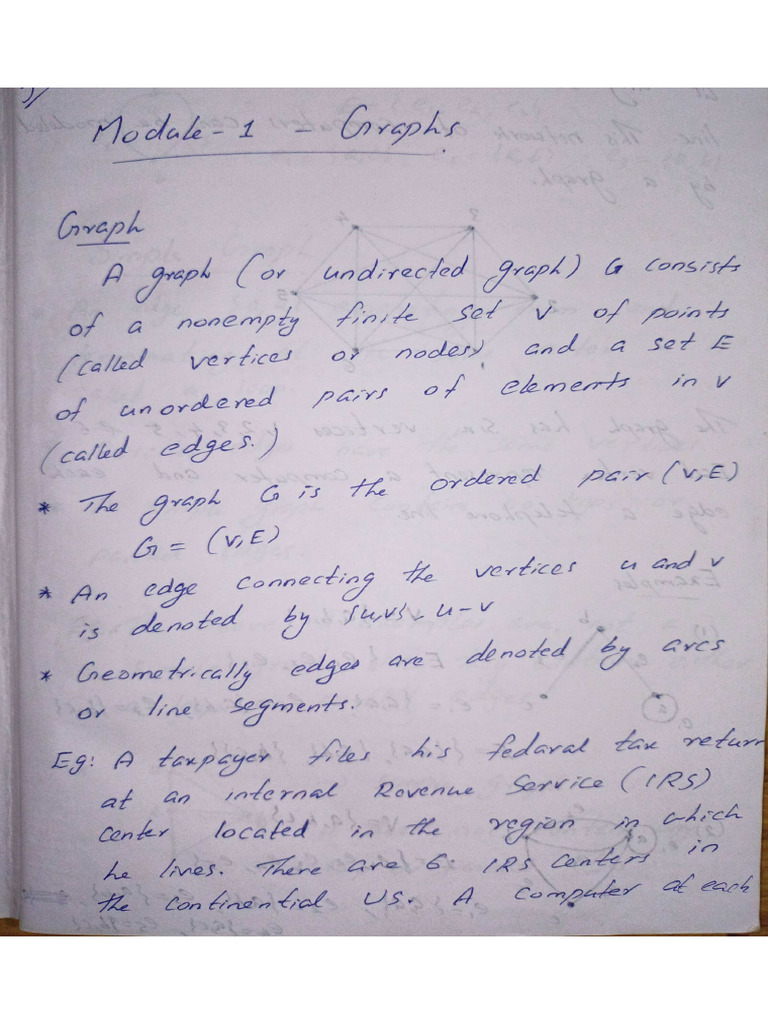 Module - 1 - Graphs
Graph
A graph (or undirected graph) G consists
of a nonempty finite set V of points
(called vertices or nodes) and a set E
of unordered pairs of elements in V
(called edges.)
* The graph G is the ordered pair (V,E)
G = (V,E)
* An edge connecting the vertices u and v
is denoted by {u,v} u-v
* Geometrically edges are denoted by arcs
or line segments.
Eg: A taxpayer files his fedaral tax return
at an internal Revenue Service (IRS)
center located in the region in which
he lines. There are 6 IRS centers in
the continential US. A computer at each